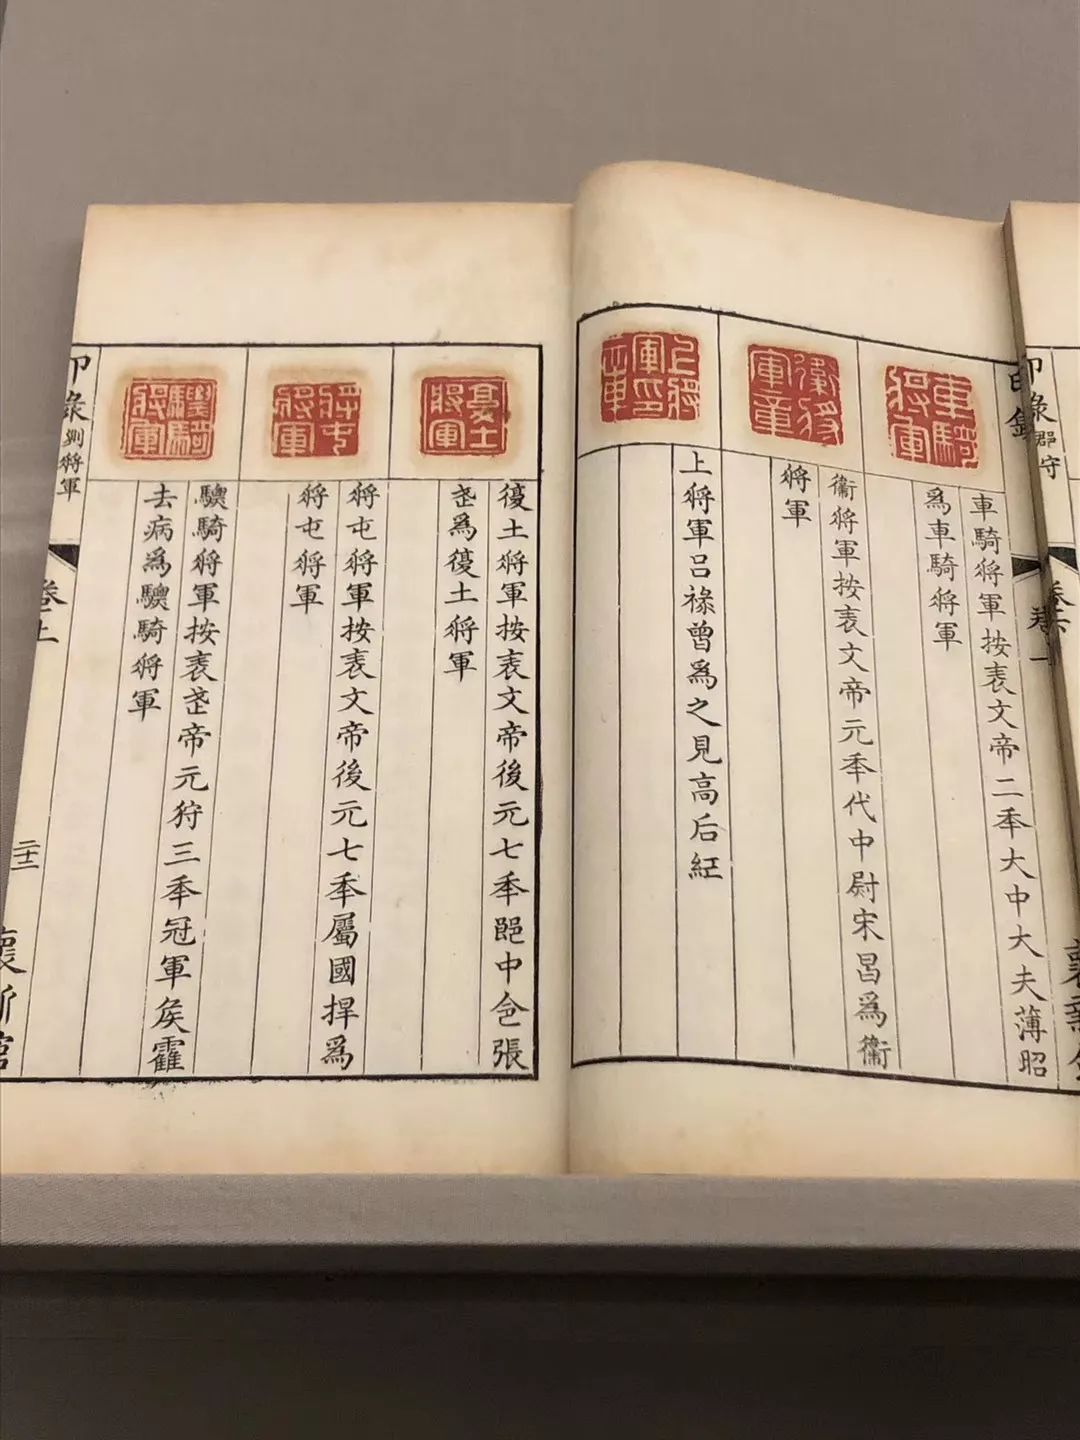 印錄
郡守
卷六
印錄
卷一
車騎將軍
車騎將軍按表文帝二秊大中大夫薄昭
爲車騎將軍
衞將軍章
衞將軍按表文帝元秊代中尉宋昌爲衞
將軍
上將軍呂祿曾爲之見高后紀
復土將軍
復土將軍按表文帝後元七秊郎中令張
武爲復土將軍
將屯將軍
將屯將軍按表文帝後元七秊屬國捍爲
將屯將軍
驃騎將軍
驃騎將軍按表武帝元狩三秊冠軍矦霍
去病爲驃騎將軍
印錄
列將軍
卷一上
二十二